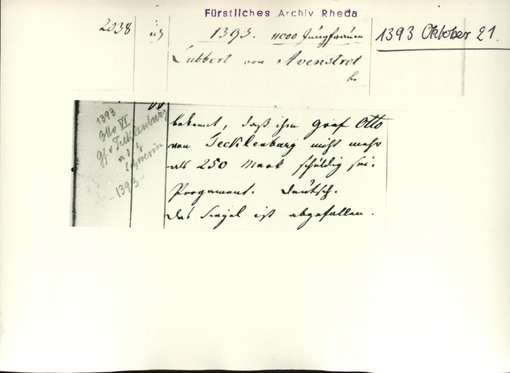 Fürstliches Archiv Rheda
2038
1393. 11000 Jungfrauen
1393 Oktober 21.
Lübbert von Avenstrot
bekennt, daß ihm Graf Otto
von Tecklenburg nicht mehr
als 250 Mark schuldig sei.
Pergament. Deutsch.
Das Siegel ist abgefallen.
1393
Otto VI.
Gf. v. Tecklenburg
- 1393 -